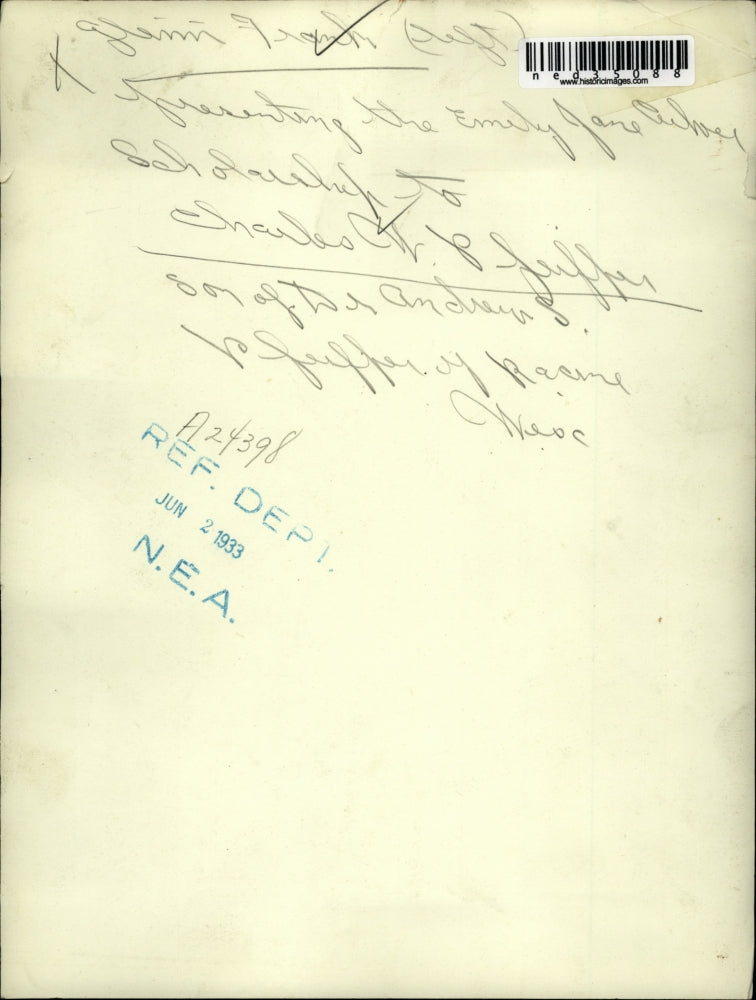 Glenn Frank (left)
ned35088
www.historicimages.com
presenting the Emily Jane Culver
Scholarship to
Charles W. Pfeiffer
son of Dr Andrew S.
Pfeiffer of Racine
Wisc
A24398
REF. DEPT.
JUN 2 1933
N.E.A.